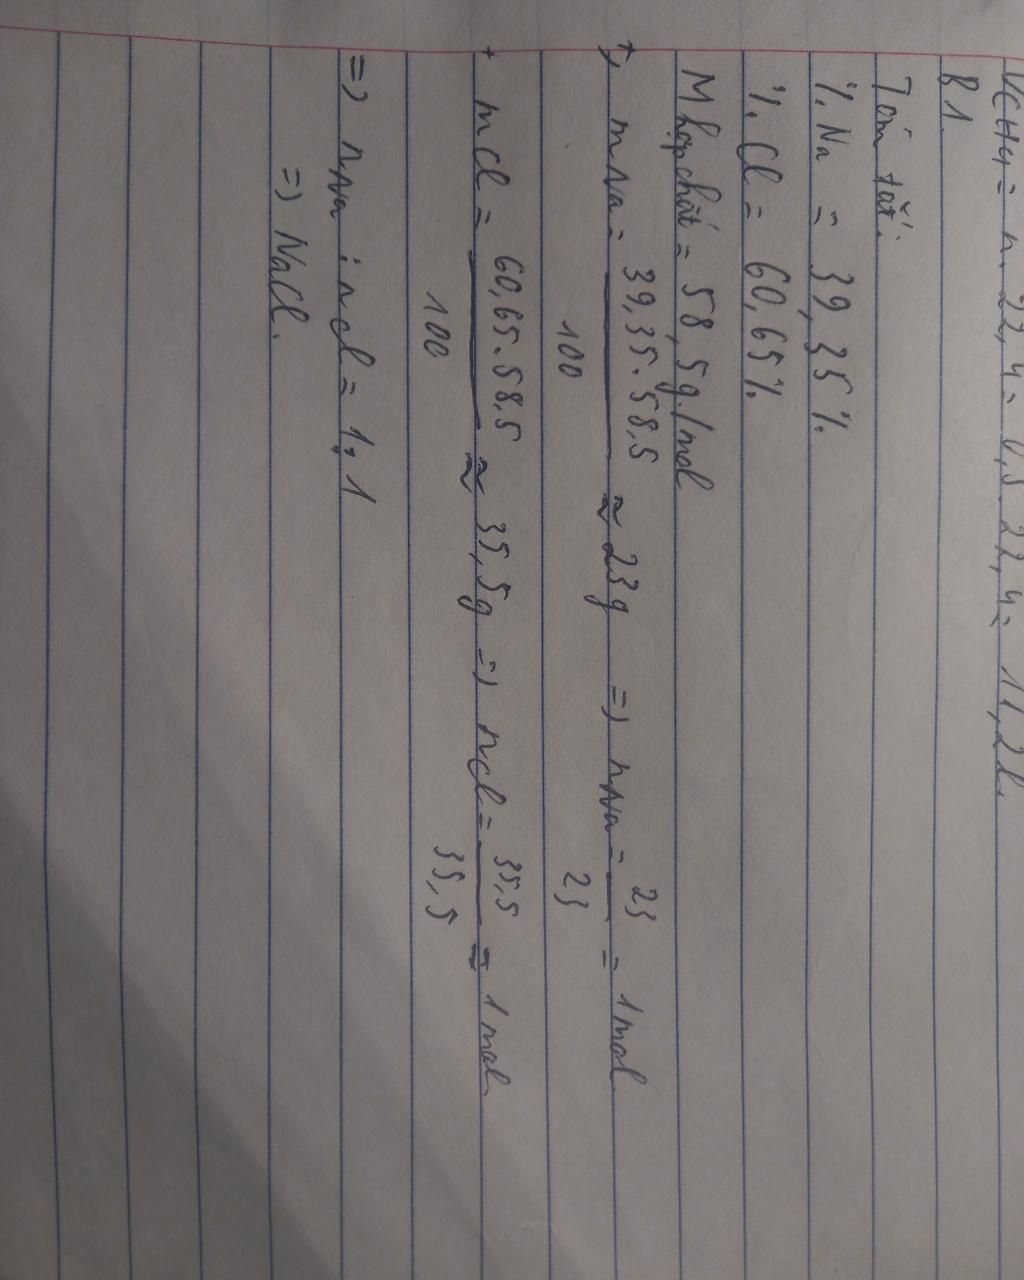 VCH4 = n. 22,4 = 0,5. 22,4 = 11,2l.
B1.
Tóm tắt:
%Na = 39,35%
%Cl = 60,65%
M hợp chất = 58,5g/mol
+, mNa = 39,35.58,5/100 ≈ 23g => nNa = 23/23 = 1mol
+ mCl = 60,65.58,5/100 ≈ 35,5g => nCl = 35,5/35,5 = 1mol
=> nNa : nCl = 1:1
=> NaCl.